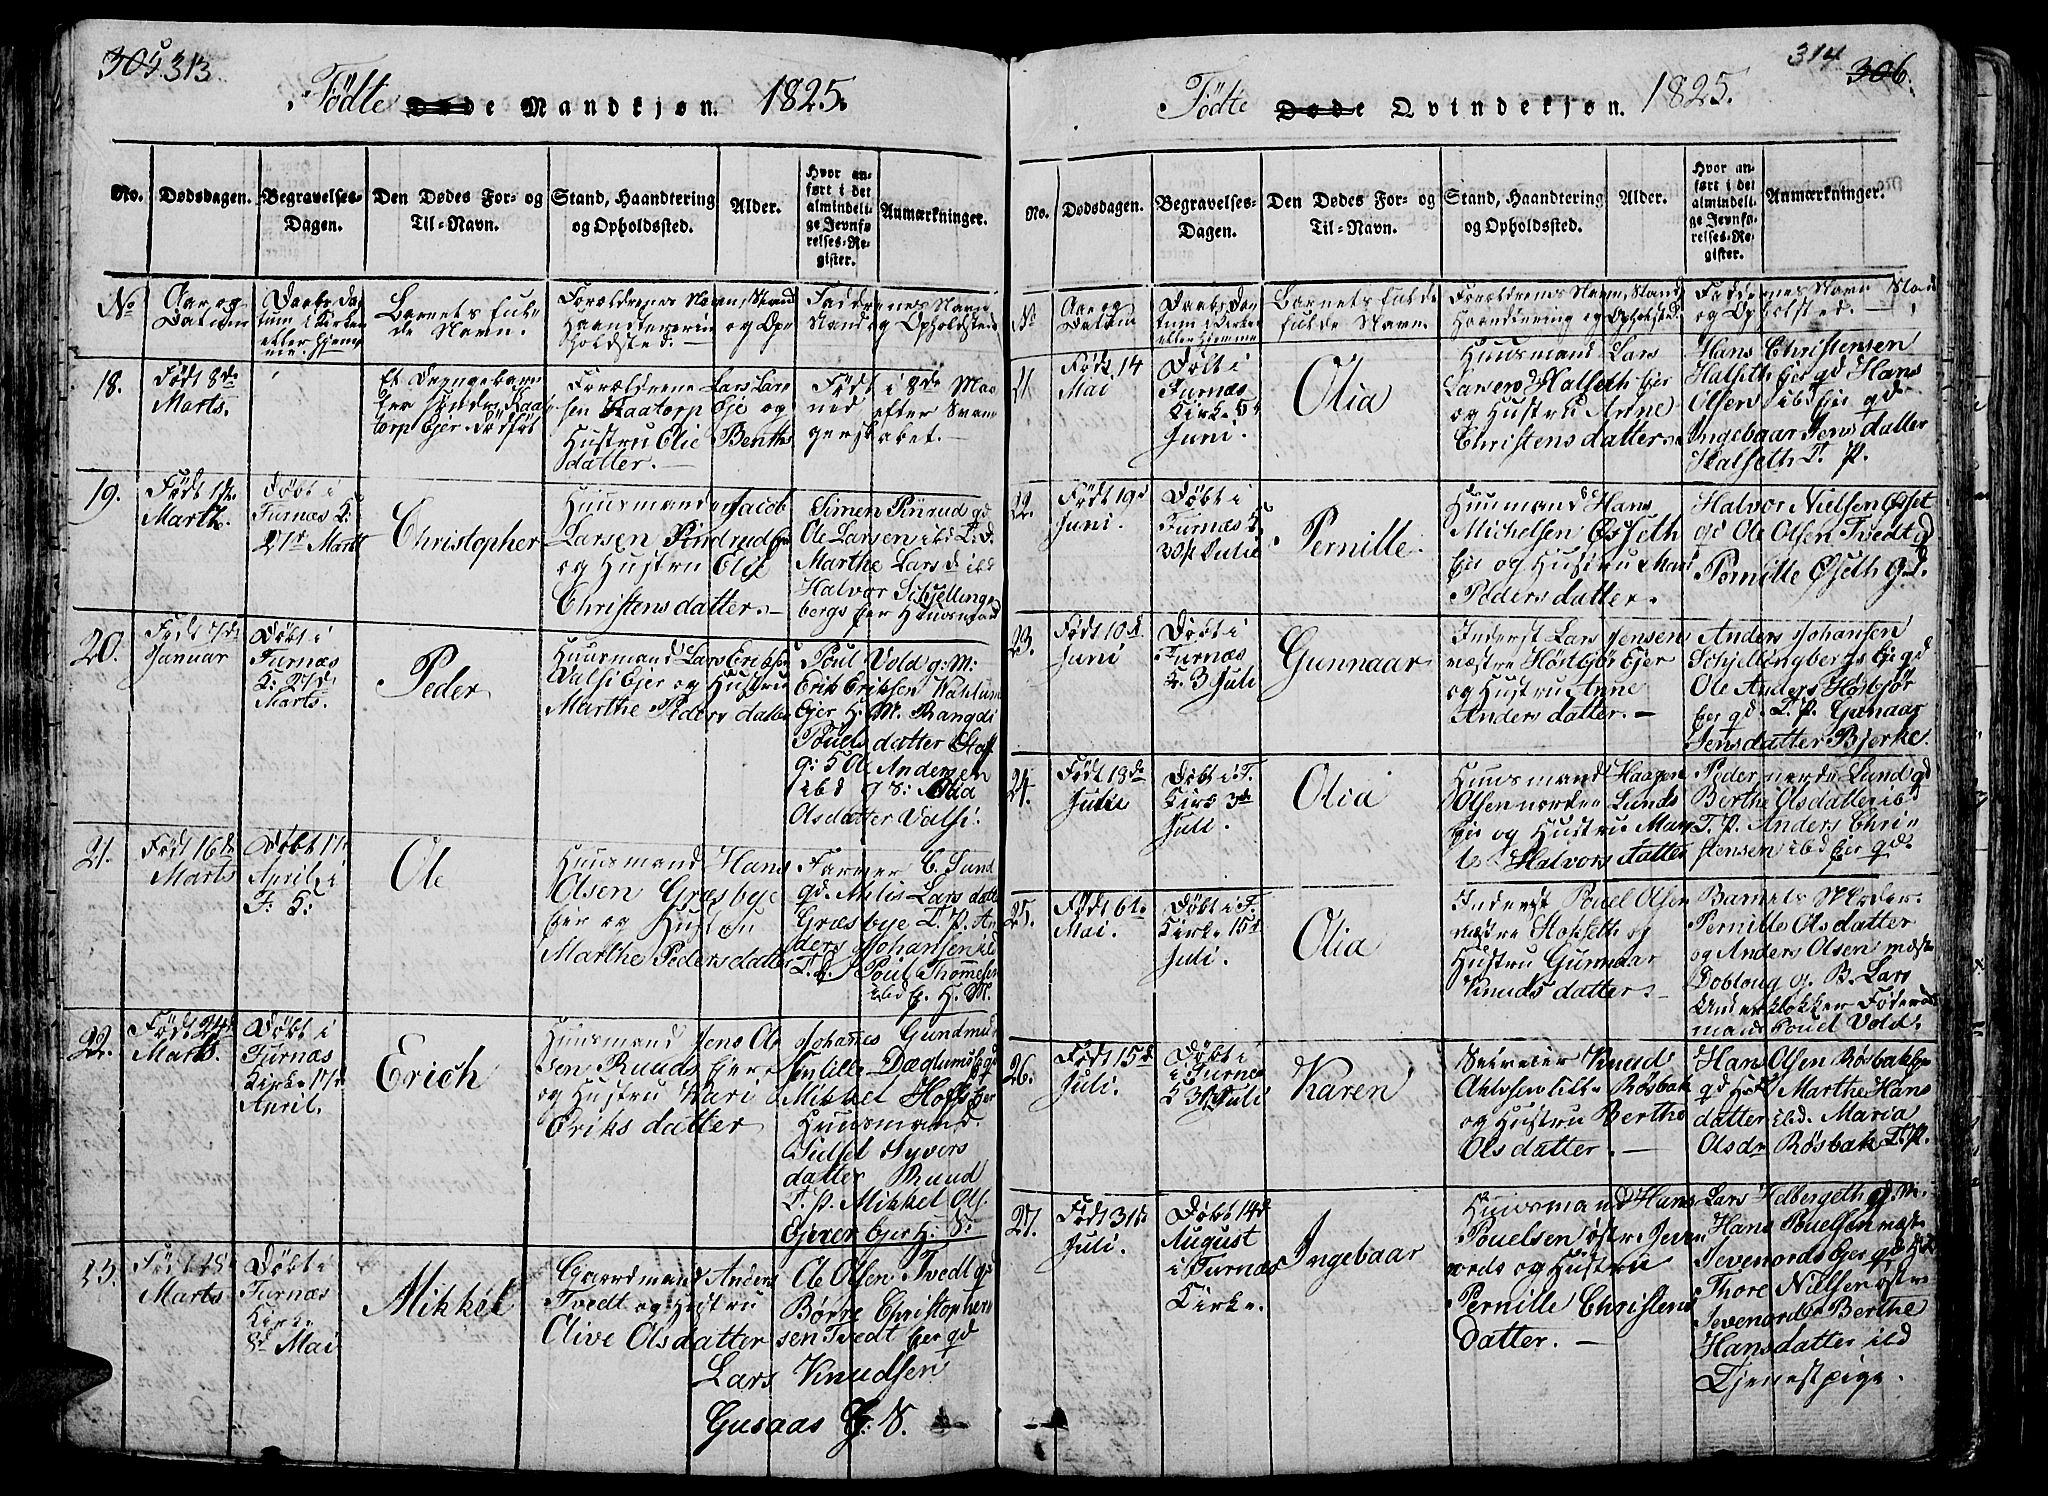 305 313
Fødte Døde Mandkjøn. 1825.
No. Dødsdagen. Begravelses-Dagen. Den Dødes For- og Til-Navn. Stand, Haandtering og Opholdssted. Alder. Hvor anført i det almindelige Jevnførelses-Register. Anmærkninger.
No Aar og Datum Daabs Datum i Kirken eller hjemme. Barnets fulde Navn. Forældrenes Navn, Stand Haandtering og Opholdsted. Faddrenes Navn Stand og Opholdsted
18. Født 8de Marts.
Et Drengebarn
Forældrene Lars Larsen Kaatorp Eje og Hustru Elie Benthsdatter.
Født i 8de Maaned efter Svangerskabet.
19. Født 1de Marts.
Døbt i Furnæs K: 27de Marts
Christopher
Huusmanden Jacob Larsen Pindrud Eje og Hustru Elie Christensdatter.
Simen Pinrud gd Ole Larsen ibd Marthe Lars d ibd Halvor Schjellingbergs Ejer Huusmand
20. Født 7de Januar
Døbt i Furnæs K: 27de Marts.
Peder
Huusmand Lars Eriksen Valsi Ejer og Hustru Marthe Pedersdatter
Poul Vold g: M: Erik Eriksen Ejer H. M. Rangdi Pouelsdatter g: Ole Andersen ibd Olia Olsdatter Valsi.
21. Født 16de Marts
Døbt 17de April i F: K:
Ole
Huusmand Hans Olsen Græsbye Ejer og Hustru Marthe Pedersdatter
gd. Larsdatter Græsbye T. P. Anders Johansen ibd Poul Thomesen ibd E. H. M.
22. Født 24de Marts.
Døbt i Furnæs Kirke 17de April.
Erich
Huusmand Jens Olsen Ruuds Ejere og Hustru Kari Eriksdatter
Johannes Gundmundsen lille Dæglum Mikkel Hoff Ejer Huusmand. Sidsel Syversdatter Ruud T. P. Mikkel Ols. Ejerer Ejer
23. Født Marts
Døbt i Furnæs Kirke 8de Mai
Mikkel
Gaardmand Anders Tvedt og Hustru Olive Olsdatter
Ole Olsen Tvedt gd Børre Christophersen Tvedt Ejer gd Lars Knudsen Gusaas
314 306.
Fødte Døde Qvindekjøn. 1825.
No. Dødsdagen. Begravelses-Dagen. Den Dødes For- og Til-Navn. Stand, Haandtering og Opholdssted. Alder. Hvor anført i det almindelige Jevnførelses-Register. Anmærkninger.
No Aar og Datum Daabs Datum i Kirke eller hjemme Barnets fulde Navn. Forældrenes Navn, Stand Haandtering og Opholdsted. Faddernes Navn Stand og Opholdsted.
21. Født 14 Mai
Døbt i Furnæs Kirke 5te Juni.
Olia
Huusmand Lars Larsen Halseth Ejer og Hustru Anne Christensdatter
Hans Christensen Halseth Ejer gd Hans Olsen ibd Ejer gd Ingebaar Jensdatter Halseth T. P.
22. Født 19d Juni.
Døbt i Furnæs K. Julii
Pernille.
Huusmand Hans Michelsen Øsseth Ejer og Hustru Mari Pedersdatter.
Halvor Nielsen Øsset gd Ole Olsen Tvedt gd Pernille Øseth gd.
23. Født 10d Juni
Døbt i Furnæs K. 3 Juli
Gunnaar
Inderst Lars Jensen næstre Høsbjør Ejer og Hustru Anne Andersdatter.
Anders Johansen Schjellingbergs Eje gd Ole Anders Høsbjør Ejer gd. T. P. Gunaar Jensdatter Bjerke.
24. Født 18de Julii
Døbt i F. Kirk 3de Juli.
Olia
Huusmand Haagen Olsen nordre Lunds Ejer og Hustru Marte Halvorsdatter
Peder nordre Lund gd Berthe Olsdatter ibd T. P. Anders Christensen ibd Ejer gd.
25. Født 6te Mai.
Døbt i F. Kirke 15d Juli.
Olia
Inderst Pouel Olsen næstre Stokseth og Hustru Gunnaar Knudsdatter.
Barnets Moder. Pernille Olsdatter og Anders Olsen næstre Doblong g. B. Lars Underklokker Føderaadsmand Pouel Vold.
26. Født 15d Juli.
Døbt i Furnæs K 31 Juli
Karen
Knud lille Røsbak og Hustru Berthe Olsdatter.
Hans Olsen Røsbak Ejer gd Marthe Hansdatter ibd. Maria Olsdr Røsbak T. P.
27. Født 31te Juli.
Døbt 14d August i Furnæs Kirke.
Ingebaar
Huusmand Hans Pouelsen østre Jevenords og Hustru Pernille Christensdatter.
Lars Hans Pouelsen næstre Jevenords Ejer gd Thore Nielsen østre Jevenorde Berthe Hansdatter ibd Tjenestpige.